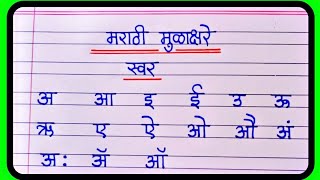 मराठी मुळाक्षरे
स्वर
अ आ इ ई उ ऊ
ऋ ए ऐ ओ औ अं
अः ॲ ऑ